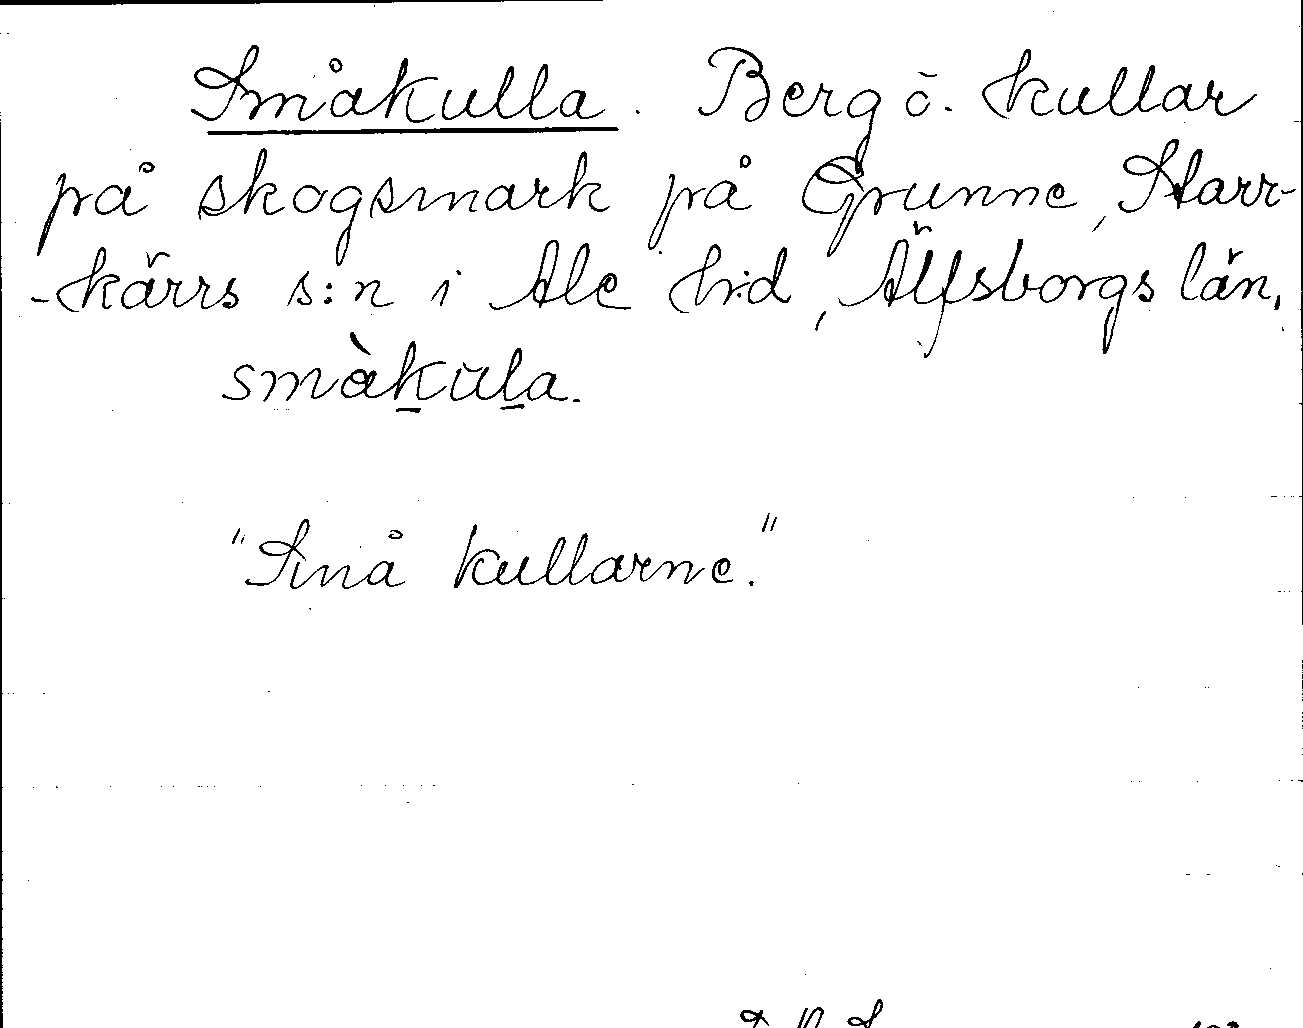 Småkulla. Berg o. kullar
på skogsmark på Grunne, Starr-
-kärrs s:n i Ale h:d, Älfsborgs län.
småkula.
"Små kullarne."